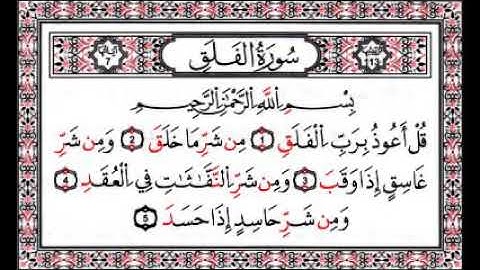 سُورَةُ الفَلَقِ
بِسْمِ اللَّهِ الرَّحْمَٰنِ الرَّحِيمِ
قُلْ أَعُوذُ بِرَبِّ الْفَلَقِ 1 مِن شَرِّ مَا خَلَقَ 2 وَمِن شَرِّ
غَاسِقٍ إِذَا وَقَبَ 3 وَمِن شَرِّ النَّفَّاثَاتِ فِي الْعُقَدِ 4
وَمِن شَرِّ حَاسِدٍ إِذَا حَسَدَ 5